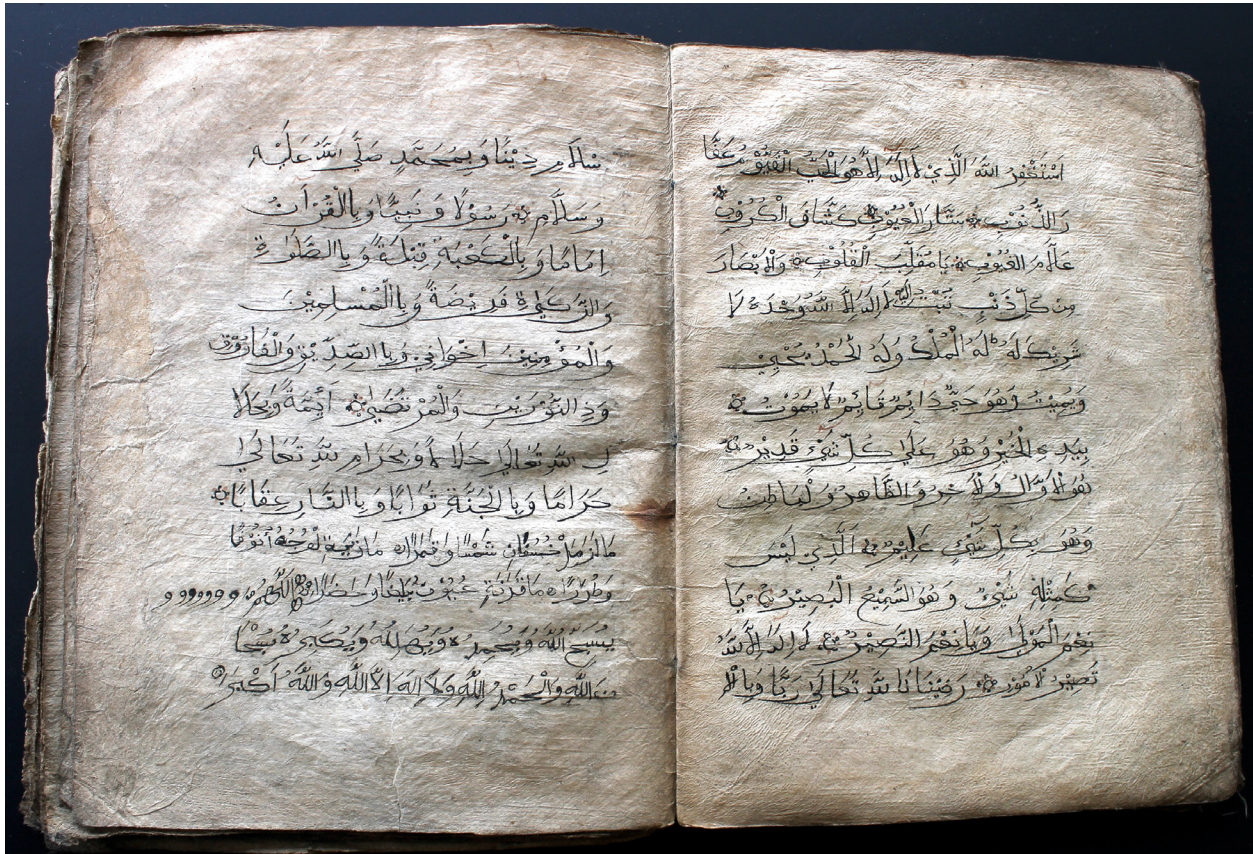 اَسْتَغْفِرُ اللهَ الَّذِيْ لَا اِلٰهَ اِلَّا هُوَ الْحَيُّ الْقَيُّوْمُ غَفَّا
رَ الذُّنُوْبِ سَتَّارَ الْعُيُوْبِ كَشَّافَ الْكُرُوْبِ
عَلَّامَ الْغُيُوْبِ يَا مُقَلِّبَ الْقُلُوْبِ وَلْاَبْصَارَ
مِنْ كُلِّ ذَنْبٍ تُبْتُ اِلَيْهِ لَا اِلٰهَ اِلَّا اللهُ وَحْدَهُ لَا
شَرِيْكَ لَهُ لَهُ الْمُلْكُ وَلَهُ لْحَمْدُ يُحْيِيْ
وَيُمِيْتُ وَهُوَ حَيٌّ دَايِمٌ قَايِمٌ لَا يَمُوْتُ
بِيَدِهِ لْخَيْرُ وَهُوَ عَلٰي كُلِّ شَيْءٍ قَدِيْرٌ
هُوَ لْاَوَّالُ وَلْاٰخِرُ وَالظَّاهِرُ وَلْبَاطِنُ
وَهُوَ بِكُلِّ شَيْءٍ عَلِيْمٌ اَلَّذِيْ لَيْسَ
كَمِثْلِهِ شَيْءٌ وَهُوَ السَّمِيْعُ الْبَصِيْرُ يَا
نِعْمَ الْمَوْلٰي وَيَا نِعْمَ النَّصِيْرُ لَا اِلٰهَ اِلَّا اللهُ
تَصِيْرُ لْاُمُوْرُ رَضِيْنَا بِاللهِ تَعَالٰي رَبًّا وَبِالْا
سْلَامِ دِيْنًا وَبِمُحَمَّدٍ صَلَّي اللهُ عَلَيْهِ
وَسَلَّامِ رَسُوْلًا وَنَبِيًّا وَبِالْقُرْاٰنِ
اِمَامًا وَبِالْكَعْبَةِ قِبْلَةً وَبِالصَّلٰوةِ
وَالزَّكٰوةِ فَرِيْضَةً وَبِاالْمُسْلِمِيْنَ
وَالْمُؤْمِنِيْنَ اِخْوَانِيْ وَبِاالصِّدِّيْقِ وَالْفَارُوْقِ
وَذِ النُّوْرَيْنِ وَالْمُرْتَضَيٰ اَئِمَّةً وَبِحَلَا
لِ اللهِ تَعَالٰي حَلَالًا وَبِحَرَامِ للهِ تَعَالٰي
حَرَامًا وَبِاالْجَنَّةِ ثَوَابًا وَبِاالنَّارِ عِقَابًا
يُسَبِّحُ اللهَ
اللهِ وَالْحَمْدُ لِلّٰهِ وَلَا اِلٰهَ اِلَّا اللهُ وَاللهُ اَكْبَرُ